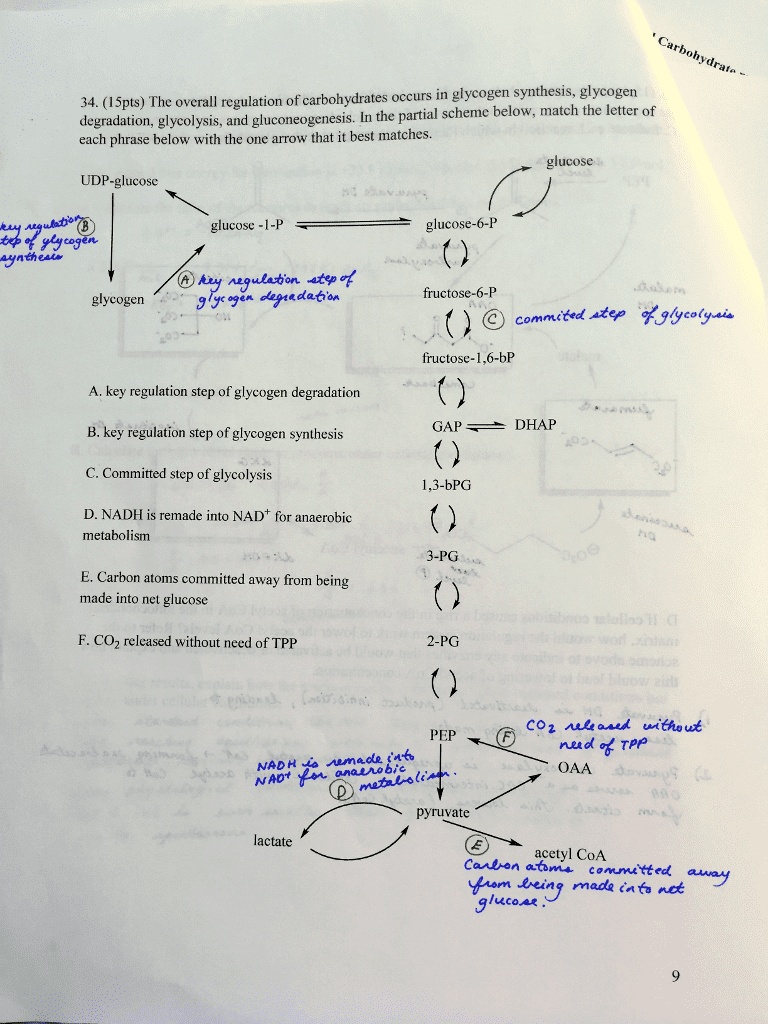 Carbohydrate
34. (15pts) The overall regulation of carbohydrates occurs in glycogen synthesis, glycogen
degradation, glycolysis, and gluconeogenesis. In the partial scheme below, match the letter of
each phrase below with the one arrow that it best matches.
glucose
UDP-glucose
glucose -1-P
glucose-6-P
key regulation
step of glycogen
synthesis
B
glycogen
A key regulation step of
glycogen degradation
fructose-6-P
C commited step of glycolysis
fructose-1,6-bP
A. key regulation step of glycogen degradation
GAP
DHAP
B. key regulation step of glycogen synthesis
C. Committed step of glycolysis
1,3-bPG
D. NADH is remade into NAD⁺ for anaerobic
metabolism
3-PG
E. Carbon atoms committed away from being
made into net glucose
F. CO₂ released without need of TPP
2-PG
PEP
F CO2 released without
need of TPP
OAA
NADH is remade into
NAD⁺ for anaerobic
D metabolism.
pyruvate
lactate
E
acetyl CoA
Carbon atoms committed away
from being made into net
glucose.
9